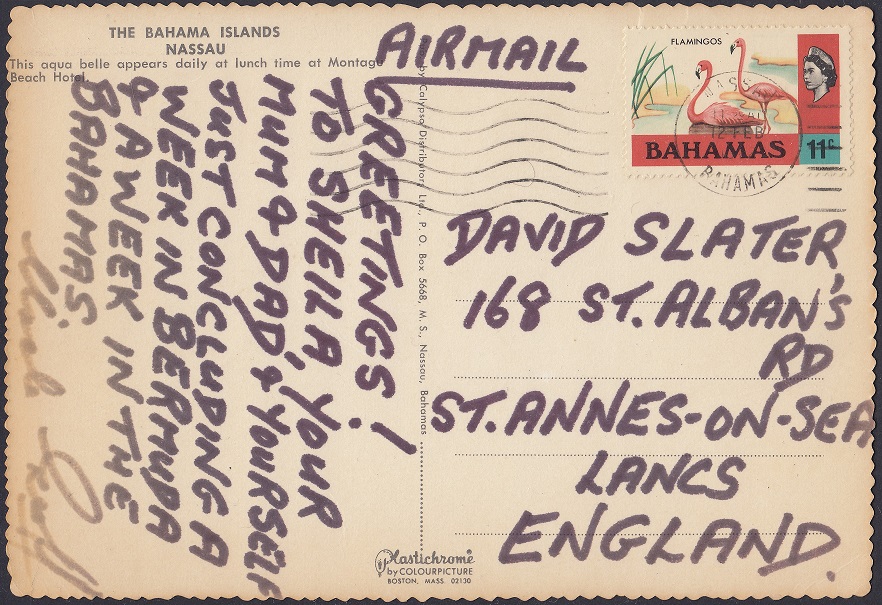 THE BAHAMA ISLANDS
NASSAU
This aqua belle appears daily at lunch time at Montagu
Beach Hotel.
AIRMAIL
GREETINGS!
TO SHEILA, YOUR
MUM & DAD, & YOURSELF
JUST CONCLUDING A
WEEK IN BERMUDA
& A WEEK IN THE
BAHAMAS.
by Calypso Distributors Ltd., P. O. Box 5668, M. S., Nassau, Bahamas
FLAMINGOS
BAHAMAS 11c
NASSAU
12 FEB
BAHAMAS
DAVID SLATER
168 ST. ALBAN'S
RD
ST. ANNES-ON-SEA
LANCS
ENGLAND.
Plastichrome
by COLOURPICTURE
BOSTON, MASS. 02130